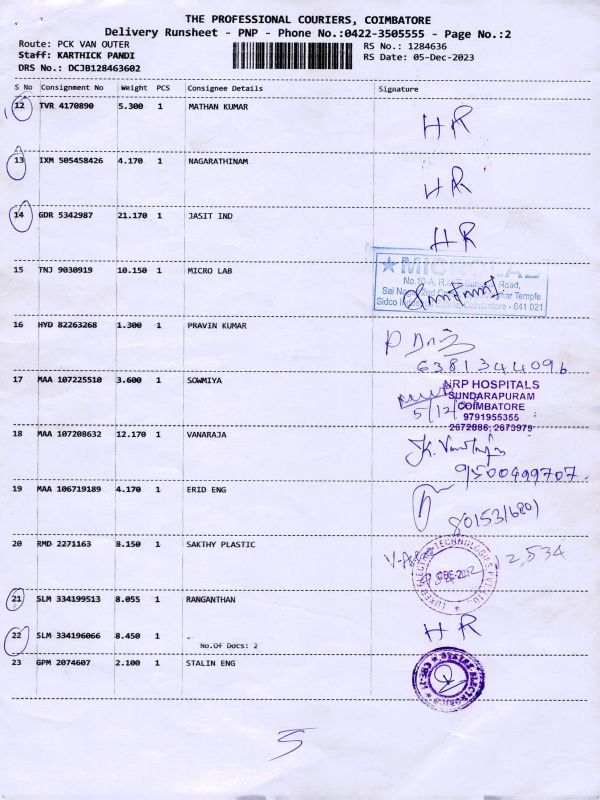 THE PROFESSIONAL COURIERS, COIMBATORE
Delivery Runsheet - PNP - Phone No.:0422-3505555 - Page No.:2
Route: PCK VAN OUTER
RS No.: 1284636
Staff: KARTHICK PANDI
RS Date: 05-Dec-2023
DRS No.: DCJB128463602
S No Consignment No Weight PCS Consignee Details Signature
12 TVR 4170890 5.300 1 MATHAN KUMAR
HR
13 IXM 505458426 4.170 1 NAGARATHINAM
HR
14 GDR 5342987 21.170 1 JASIT IND
HR
15 TNJ 9030919 10.150 1 MICRO LAB
No.10-A, Road,
Coimbatore - 641 021
16 HYD 82263268 1.300 1 PRAVIN KUMAR
6381344096
17 MAA 107225510 3.600 1 SOWMIYA
NRP HOSPITALS
SUNDARAPURAM
COIMBATORE
9791955355
2672886, 2673979
5/12
18 MAA 107208632 12.170 1 VANARAJA
9500499707
19 MAA 106719189 4.170 1 ERID ENG
8015316801
20 RMD 2271163 8.150 1 SAKTHY PLASTIC
21 SLM 334199513 8.055 1 RANGANTHAN
22 SLM 334196066 8.450 1 .
No.Of Docs: 2
HR
23 GPM 2074607 2.100 1 STALIN ENG
5